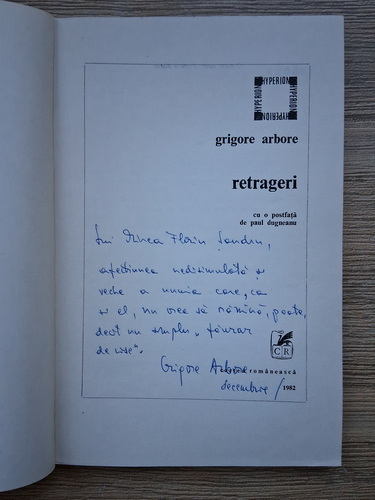 HYPERION
HYPERION
HYPERION
HYPERION
grigore arbore
retrageri
cu o postfață
de paul dugneanu
Lui Mircea Florin Șandru,
afecțiunea nedisimulată și
veche a unuia care, ca
și el, nu vrea să rămînă, poate,
decît un simplu „făurar
de vise".
Grigore Arbore
românească
decembrie / 1982
CR